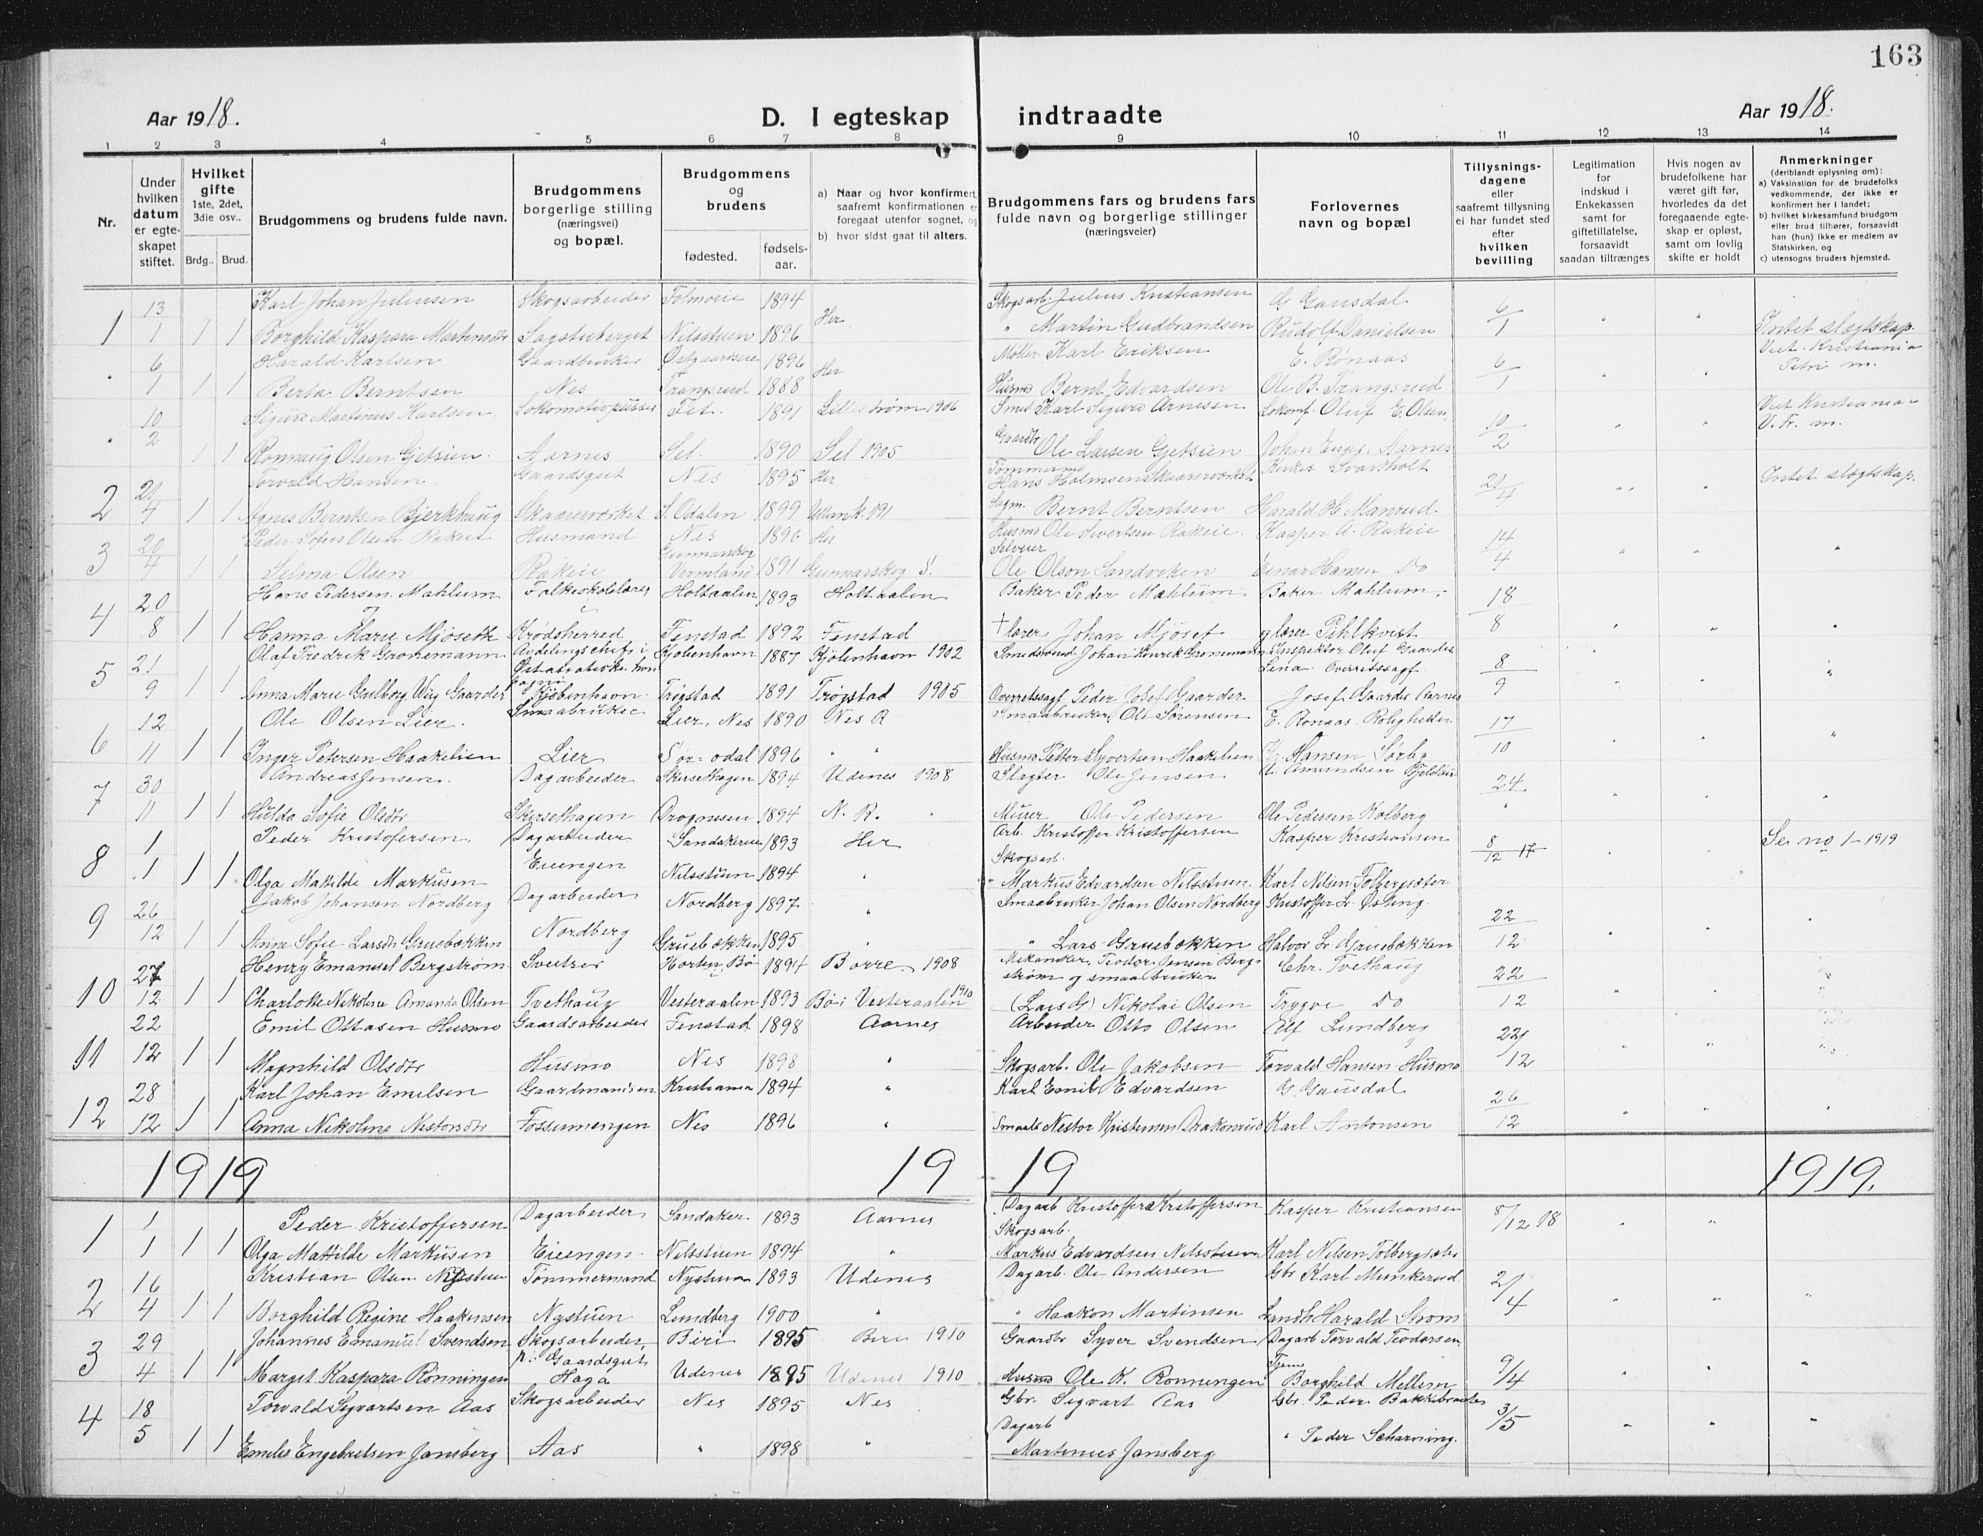 163
Aar 1918.
D. I egteskap indtraadte
Aar 1918.
1 2 3 4 5 6 7 8 9 10 11 12 13 14
Nr.
Under hvilken datum er egteskapet stiftet.
Hvilket gifte 1ste, 2det, 3die osv..
Brdg.. Brud.
Brudgommens og brudens fulde navn.
Brudgommens borgerlige stilling (næringsvei) og bopæl.
Brudgommens og brudens
fødested. fødselsaar.
a) Naar og hvor konfirmert, saafremt konfirmationen er foregaat utenfor sognet, og
b) hvor sidst gaat til alters.
Brudgommens fars og brudens fars fulde navn og borgerlige stillinger (næringsveier)
Forlovernes navn og bopæl
Tillysningsdagene eller saafremt tillysning ei har fundet sted efter hvilken bevilling
Legitimation for indskud i Enkekassen samt for giftetillatelse, forsaavidt saadan tiltrænges
Hvis nogen av brudefolkene har været gift før, hvorledes da det foregaaende egteskap er opløst, samt om lovlig skifte er holdt
Anmerkninger (deriblandt oplysning om):
a) Vaksination for de brudefolks vedkommende, der ikke er konfirmert her i landet;
b) hvilket kirkesamfund brudgom eller brud tilhører, forsaavidt han (hun) ikke er medlem av Statskirken, og
c) utensogns bruders hjemsted.
13 Karl Johan Juliussen Skogsarbeider 1894 Skogsarb. Julius Kristiansen G Gausdal 6/1
1 1 1 1 Borghild Kaspara Martinsdtr Sagsterberget Nilsstuen 1896 Her " Martin Gudbrandsen Rudolf Danielsen Intet slægtskap.
6 Harald Karlsen Gaardbruker 1896 Møller Karl Eriksen E. Rønaas 6/1 Viet Kristiania Petri m.
" 1 1 1 Berta Berntsen Nes Trangsrud 1888 Her Husmd Bernt Edvardsen Ole B. Trangsrud
10 Sigurd Martinus Karlsen Lokomotivpusser Fet. 1891 Lillestrøm 1906 Smed Karl Sigurd Arnesen Lokomf. Oluf E. Olsen, 10/2 Viet Kristiania V. Fr. m.
" 2 1 1 Ronnaug Olsen Gjetsien. Aarnes Sel. 1890 Sel 1905 Gaardbr Ole Larsen Gjetsien Johan Enger Aarnes
21 Torvald Hansen. Gaardsgut Nes 1895 Her Tømmermd Hans Holmsen Skaarerværket Svartholt 21/4 Intet slægtskap.
2 4 1 1 Agnes Berntsen Bjerkhaug Skaarerværket S. Odalen 1899 Bernt Berntsen Harald H. Manrud.
20 Peder Sofus Olsen Rakeie Husmand Nes 1890 Her Husmd Ole Sivertsen Rakeie. Kasper A. Rakeie 14/4
3 4 1 1 Selma Olsen Rakeie Gunnarskog Vermland 1891 Gunnarskog S. Ole Olson Sandviken Einar Hansen Do
20 Hans Pedersen Mahlum og Folkeskolelærer Holtaalen 1893 Holtaalen Baker Peder Mahlum. Baker Mahlum. 18/8
4 8 1 1 Hanna Marie Mjøseth Krødsherred Fenstad 1892 Fenstad † lærer Johan Mjøset g lærer Pihlkvist
21 Olaf Fredrik Gronemann Avdelingschef i Østasiatiske kompagni Kjøbenhavn 1887 Kjøbenhavn 1902 Smedsvend Johan Henrik Gronemann Inspektør Oluf Gaarder Lena Overretssagf. 8/9
5 9 1 1 Anna Marie Gulborg Wiig Gaarder Kjøbenhavn. Trøgstad 1891 Trøgstad 1905 Overretssagf. Peder Josef Gaarder Josef Gaarder Aarnes
12 Ole Olsen Lier. Smaabruker Lier, Nes 1890 Nes R Smaabruker Ole Sørensen E. Rønaas. Roligheden 17/10
6 11 1 1 Inger Petersen Haakelien Lier Sør-odal 1896 " " Husmd Petter Syvertsen Haakelien Chr. Hansen Sørby
30 Andreas Jensen. Dagarbeider Skursethagen 1894 Udenes 1908 Slagter Ole Jensen O. Amundsen 24
7 11 1 1 Hulda Sofie Olsdtr Skursethagen Drognesen 1894 N. R. Murer Ole Pedersen Ole Pedersen Kolberg
1 Peder Kristofersen Dagarbeider Sandakeren 1893 Her Arb. Kristoffer Kristoffersen Kasper Kristiansen 8/12 17 Se no 1 - 1919
8 1 1 1 Olga Matilde Markusen Eiengen Nilsstuen 1894 Skogsarb. Markus Edvardsen Nilsstuen. Karl Nilsen Tolbergsæter
26 Jakob Johansen Nordberg Dagarbeider Nordberg 1897 " Smaabruker Johan Olsen Nordberg Kristoffer L. Østeng 22/12
9 12 1 1 Anna Sofie Larsdtr Gruebækken Nordberg Gruebækken 1895 " Lars Gruebækken Halvor L. Gruebækken
27 Henry Emanuel Bergstrøm Sveitser Horten Bø 1894 Borre 1908 Mekaniker Teodor Jensen Bergstrøm og smaabruker Chr. Tvethaug 22/12
10 12 1 1 Charlotte Nikoline Amanda Olsen Tvethaug Vesteraalen 1893 Bø i Vesteraalen 1910 (Lars G) Nikolai Olsen Trygve Do
22 Emil Ottosen Husmo Gaardsarbeider Fenstad 1898 Aarnes Arbeider Otto Olsen Alf Lundberg 22/12
11 12 1 1 Magnhild Olsdtr Husmo Nes 1898 " Skogsarb. Ole Jakobsen Torvald Hansen Husmo
28 Karl Johan Emilsen Gaardmandsen Kristiania 1894 " Karl Emil Edvardsen G. Gausdal 26/12
12 12 1 1 Anna Nikoline Nestorsdtr Fossumengen Nes 1896 " Smaabr Nestor Kristensen Drakerud Karl Antonsen
1919 19 19 1919.
1 Peder Kristoffersen Dagarbeider Sandaker 1893 Aarnes Dagarb Kristoffer Kristoffersen Kasper Kristiansen 8/12 18
1 1 1 1 Olga Matilde Markusen Eiengen Nilsstuen 1894 " Skogsarb. Markus Edvardsen Nilsstuen Karl Nilsen Tolbergsæter
16 Kristian Olsen Nystuen Tømmermand Nystuen 1893 Udenes Dagarb. Ole Andersen Gbr Karl Munkerud 2/4
2 4 1 1 Borghild Regine Haakensen Nystuen Lundberg 1900 " " Haakon Martinsen Landh Harald Strøm
29 Johannes Emanuel Svendsen Skogsarbeider, Biri 1895 Biri 1910 Gaardbr Syver Svendsen Dagarb Torvald Teodorsen 9/4
3 4 1 1 Margit Kaspara Rønningen Gaardsgut Haga Udenes 1895 Udenes 1910 Husmd Ole K. Rønningen Tjene Borghild Mellem
18 Torvald Sigvartsen Aas Skogsarbeider Nes 1895 Nes Gbr. Sigvart Aas Gbr. Peder Bakkebraaten 3/5
4 5 1 1 Emelie Engebretsen Jansberg Aas " 1898 " Dagarb Martinus Jansberg " Peder Scharning.